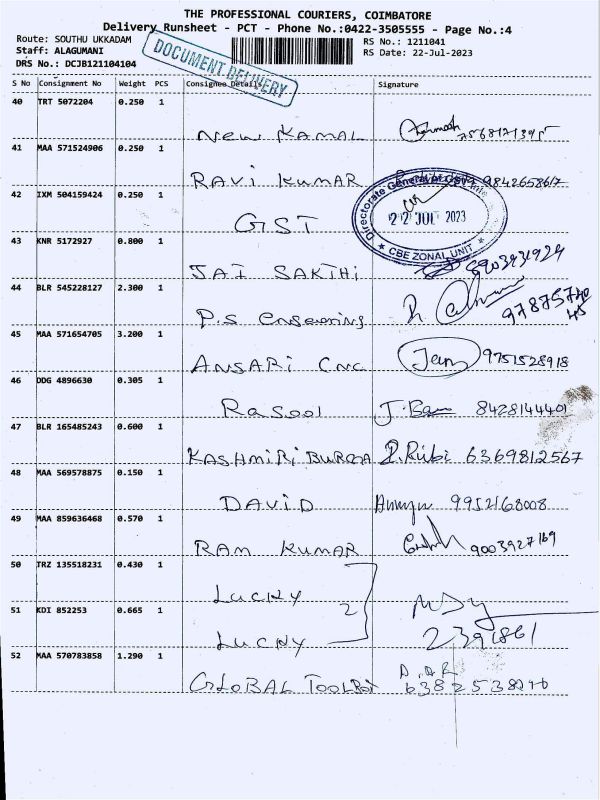 THE PROFESSIONAL COURIERS, COIMBATORE
Delivery Runsheet - PCT - Phone No.:0422-3505555 - Page No.:4
Route: SOUTHU UKKADAM
RS No.: 1211041
Staff: ALAGUMANI
RS Date: 22-Jul-2023
DRS No.: DCJB121104104
DOCUMENT DELIVERY
S No Consignment No Weight PCS Consignee Details Signature
40 TRT 5072204 0.250 1
New KAMAL 7568121395
41 MAA 571524906 0.250 1
RAVI KUMAR 9842658617
42 IXM 504159424 0.250 1
GIST
Directorate General of GST
22 JUL 2023
* CBE ZONAL UNIT *
43 KNR 5172927 0.800 1
JAI SAKTHI
44 BLR 545228127 2.300 1
P.S
45 MAA 571654705 3.200 1
ANSARI CNC 9751528918
46 DDG 4896630 0.305 1
Rasool 8428144401
47 BLR 165485243 0.600 1
KASHMIRI BURQA R.Rubi 6369812567
48 MAA 569578875 0.150 1
DAVID 9952168008
49 MAA 859636468 0.570 1
RAM KUMAR 9003927169
50 TRZ 135518231 0.430 1
LUCKY
2
51 KDI 852253 0.665 1
LUCKY 2391861
52 MAA 570783858 1.290 1
GLOBAL